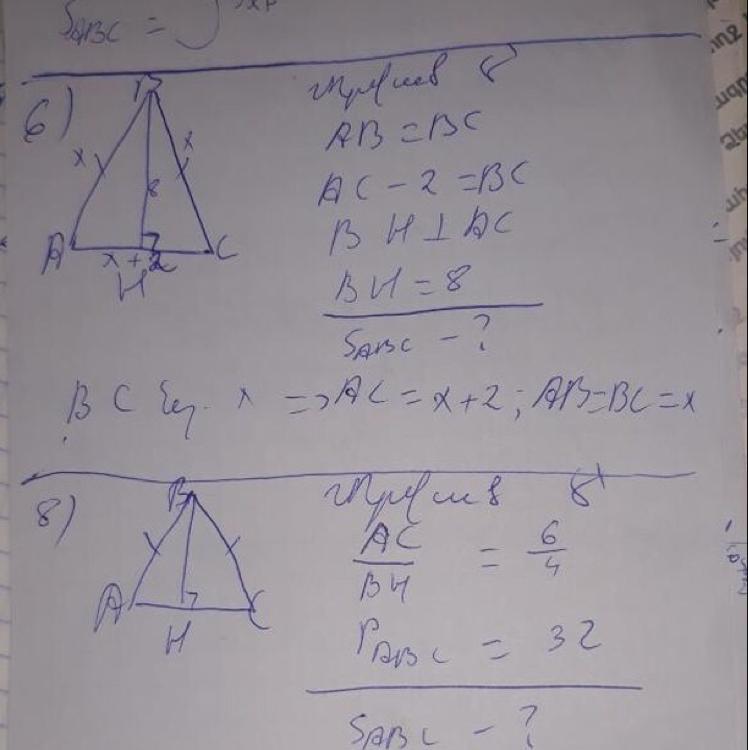 S_ABC =
6)
B
x x
8
A x + 2 C
H
AB = BC
AC - 2 = BC
BH ⊥ AC
BH = 8
S_ABC - ?
BC x => AC = x + 2 ; AB = BC = x
8)
B
A C
H
AC/BH = 6/4
P_ABC = 32
S_ABC - ?